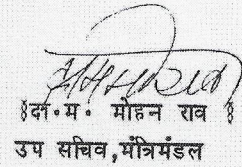 §दा॰म॰ मोहन राव §
उप सचिव,मंत्रिमंडल